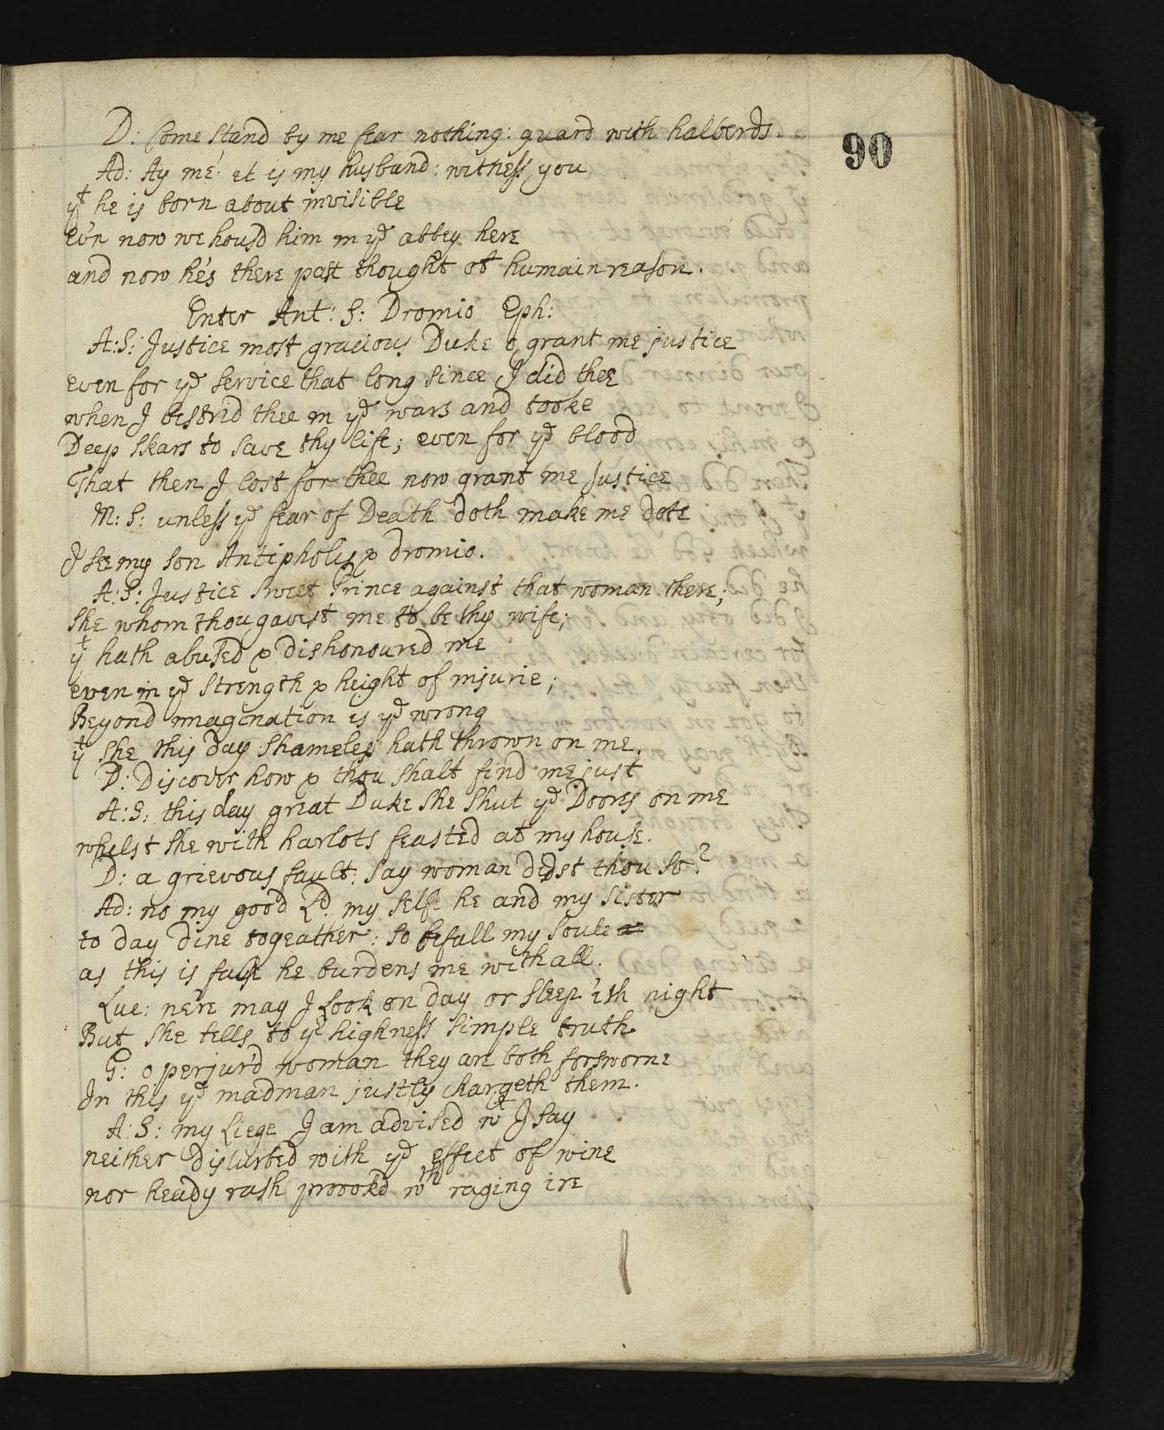 D: Come stand by me fear nothing: guard with halberds.
90
Ad: Ay me! it is my husband: witness you
yt he is born about invisible
Ev'n now we hous'd him in ye abbey here
and now he's there past thought of humain reason.
Enter Ant: S: Dromio Eph:
A:S: Justice most gracious Duke o grant me justice
even for ye service that long since I did thee
when I bestrid thee in ye wars and tooke
Deep skars to save thy life; even for ye blood
That then I lost for thee now grant me Justice
M: S: unless ye fear of Death doth make me dote
I se my son Antipholis & dromio.
A:S: Justice sweet Prince against that woman there;
She whom thou gavest me to be thy wife;
yt hath abused & dishonoured me
even in ye strength & height of injurie;
Beyond imagination is ye wrong
yt she this day shameles hath thrown on me.
D: Discover how & thou shalt find me just
A:S: this day great Duke she shut ye Doors on me
whilst she with harlots feasted at my house.
D: a grievous fault: say woman didst thou so?
Ad: no my good Ld. my self he and my sister
to day dine togeather: so befall my soule
as this is false he burdens me withall.
Luc: ne're may I look on day or sleep 'ith night
But she tells to yr highness simple truth
G: o perjur'd woman they are both forsworne
In this ye madman justly chargeth them.
A:S: my Liege I am advised wt I say
neither disturbed with ye effect of wine
nor heady rash provokd wth raging ire